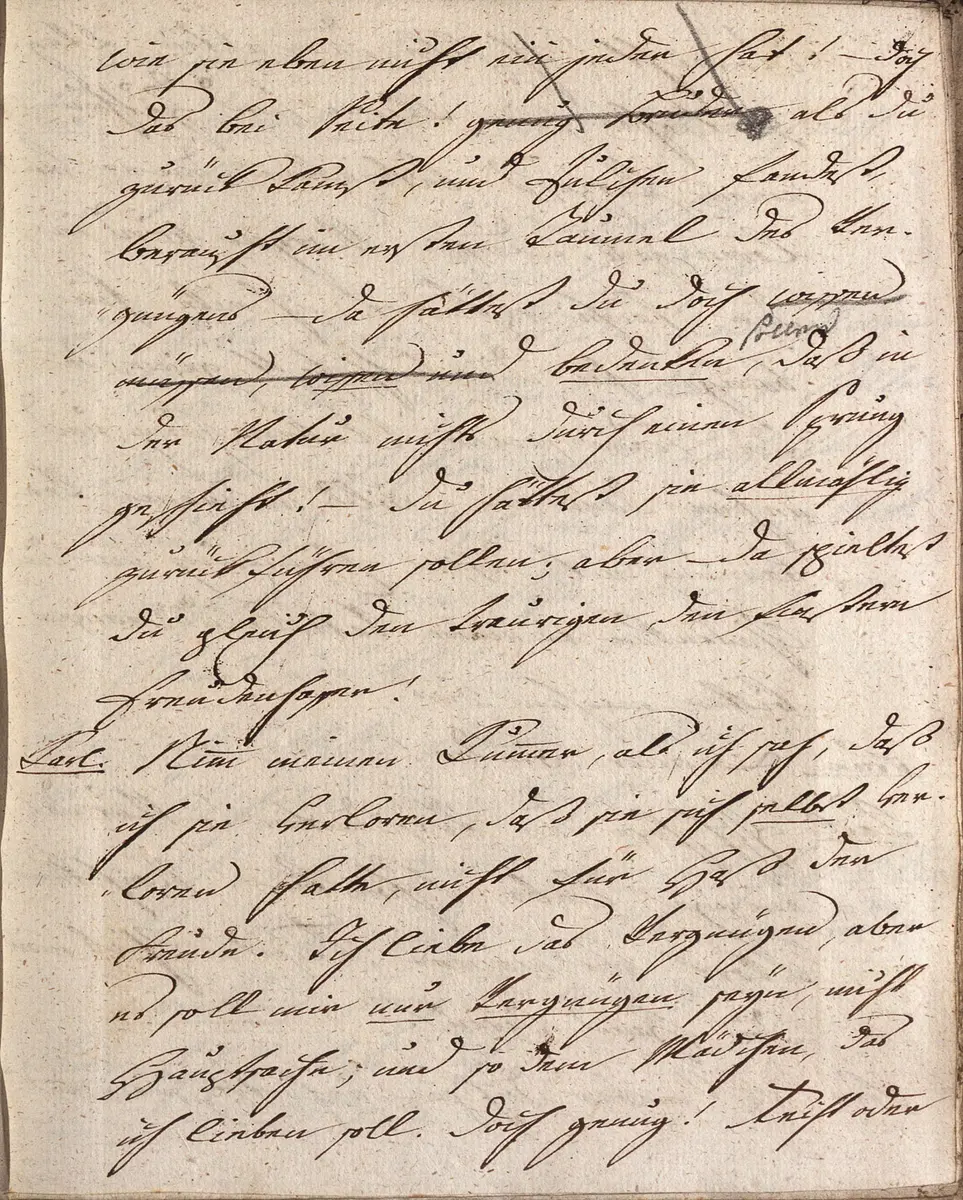 wie sie eben nicht ein jeder hat! – doch
das bei Seite! genug Bruder als du
zurück kamst, und Julchen fandest,
berauscht im ersten Taumel des Ver-
gnügens – da hättest du doch wissen
müssen, wissen und bedenken, daß in
der Natur nichts durch einen Sprung
geschieht! – du hättest sie allmählig
zurück führen sollen; aber da spieltest
du gleich den traurigen, den finstern
Freudenhasser!
Karl. Nimm meinen Kummer, als ich sah, daß
ich sie verloren, daß sie sich selbst ver-
loren hatte, nicht für Haß der
Freude. Ich liebe das Vergnügen, aber
es soll mir nur Vergnügen seyn, nicht
Hauptsache; und so dem Mädchen, das
ich lieben soll. Doch genug! Leicht oder